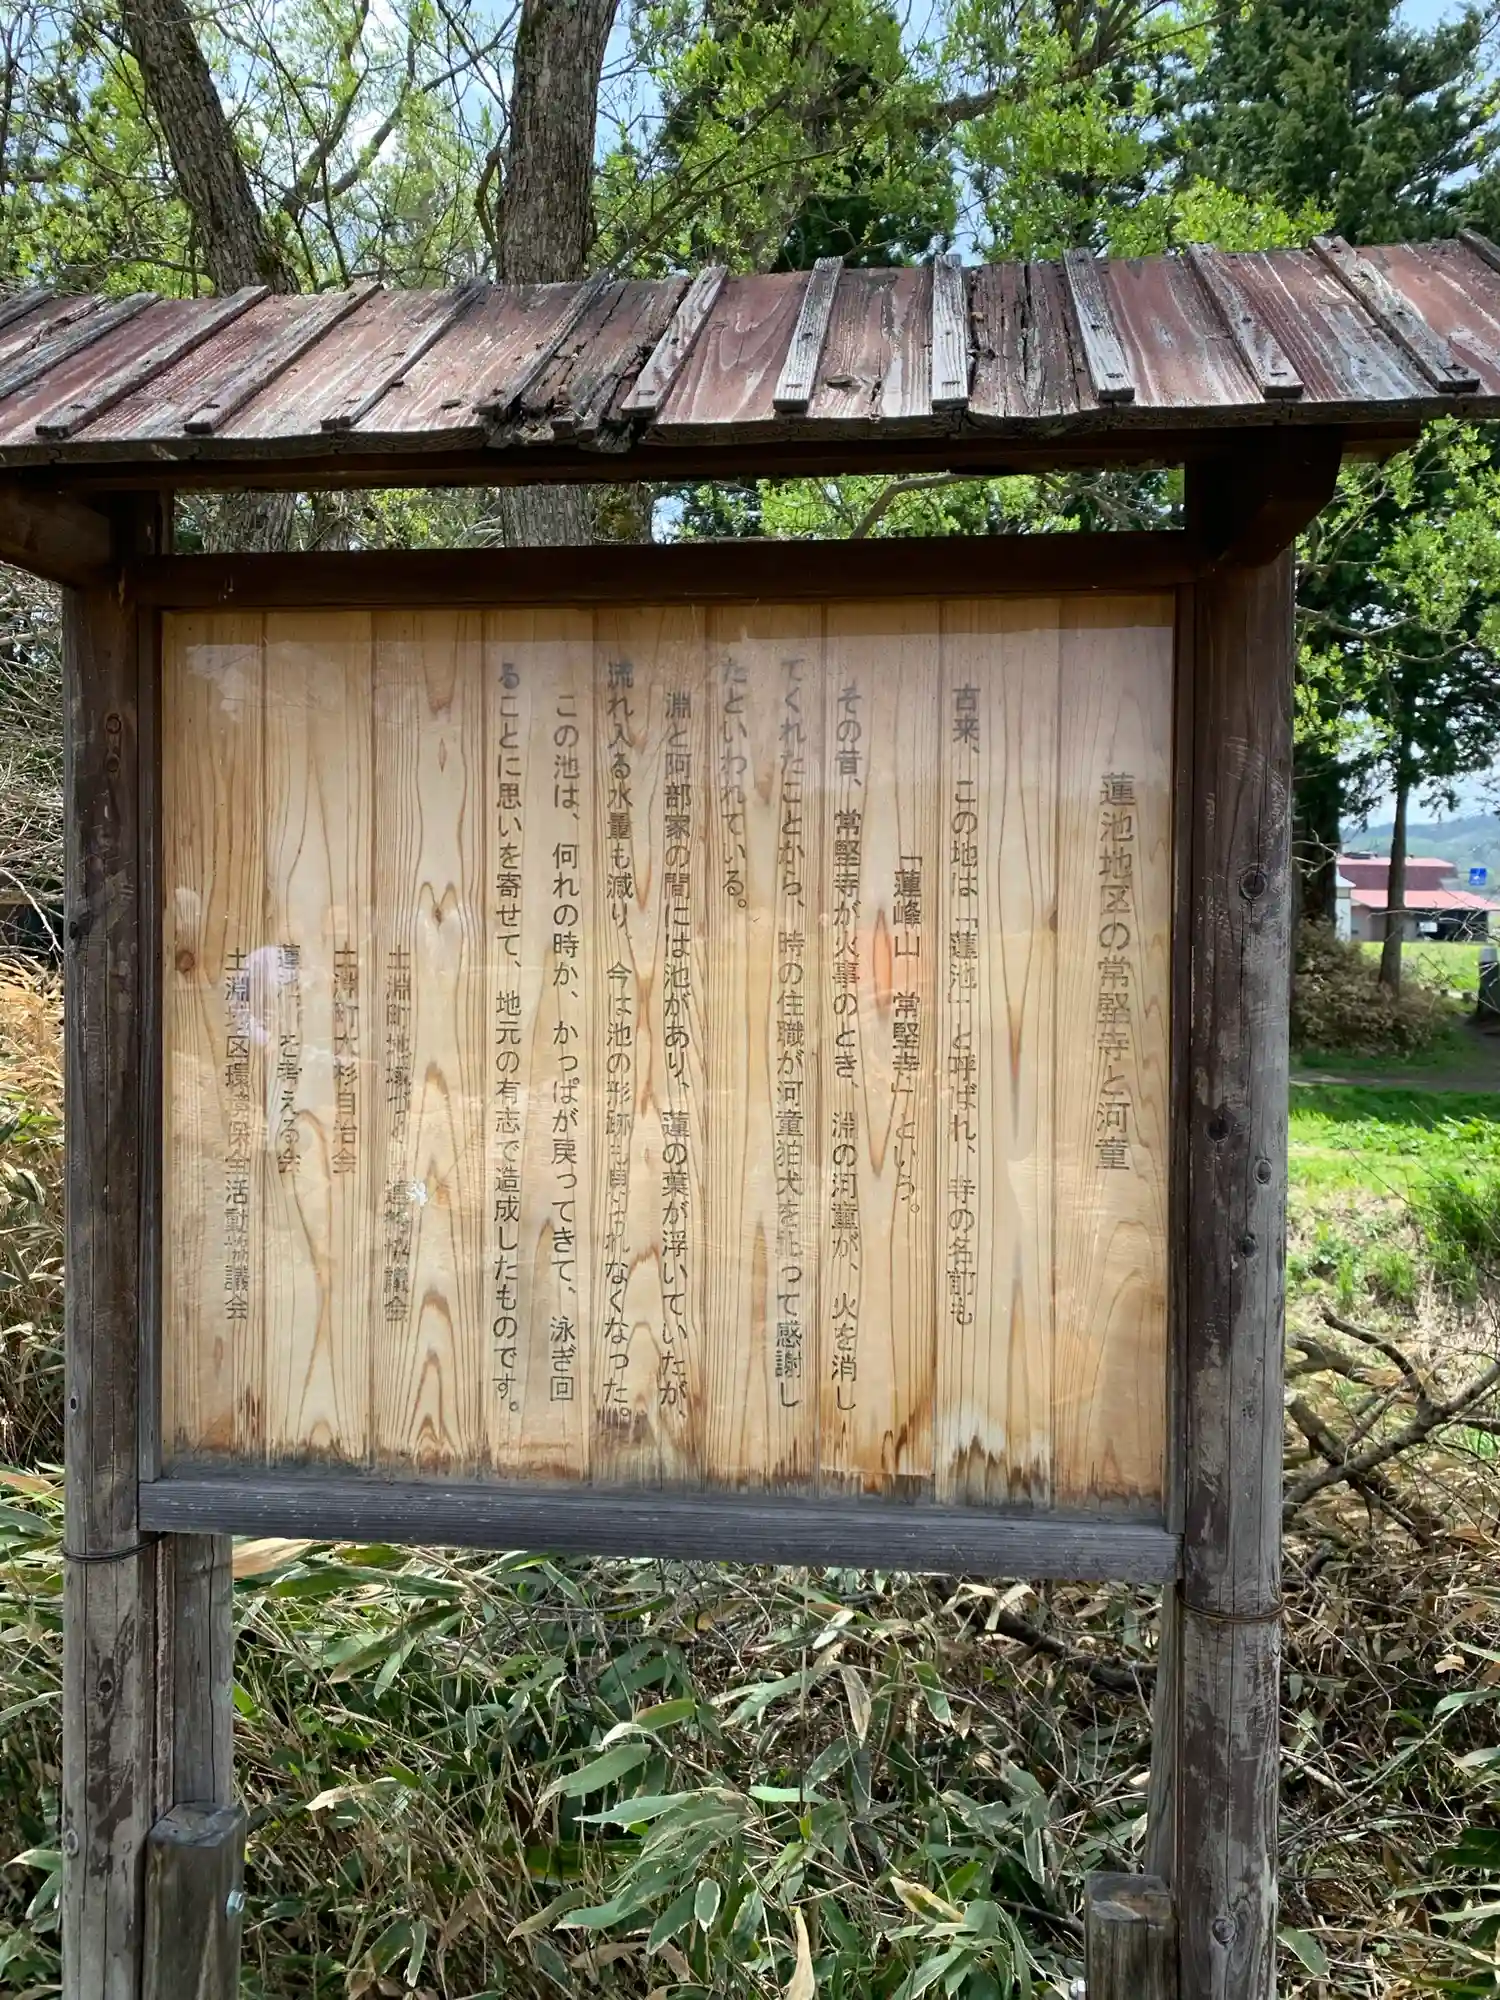 蓮池地区の常堅寺と河童
古来、この地は「蓮池」と呼ばれ、寺の名前も
「蓮峰山　常堅寺」という。
その昔、常堅寺が火事のとき、淵の河童が、火を消し
てくれたことから、時の住職が河童狛犬を北って感謝し
たといわれている。
淵と阿部家の間には池があり、蓮の葉が浮いていたが、
流れ入る水量も減り、今は池の形跡も見られなくなった。
この池は、何れの時か、かっぱが戻ってきて、泳ぎ回
ることに思いを寄せて、地元の有志で造成したものです。
土淵町地域づくり連絡協議会
土淵町大杉自治会
蓮池　を考える会
土淵地区環境保全活動協議会